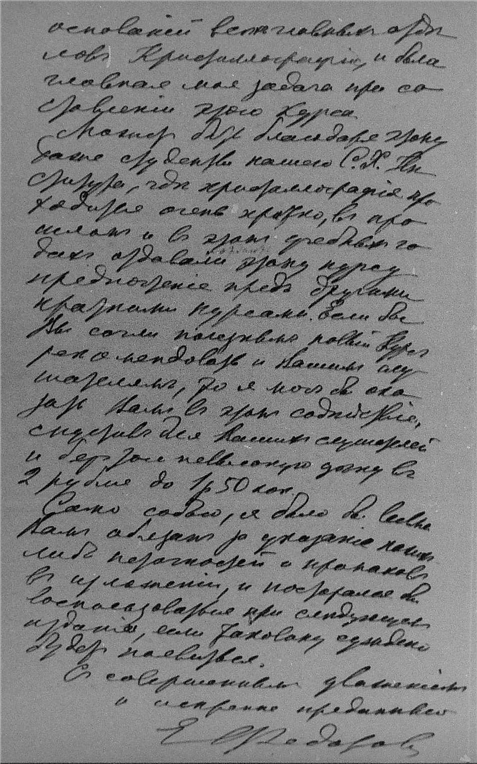 основаній всѣхъ главныхъ отдѣ
ловъ Кристаллографіи, и была
главная моя задача при со
ставленіи этого курса.
Можетъ быть благодаря этому
даже студенты нашего С.Х. Ин
ститута, гдѣ кристаллографія про
ходится очень кратко, въ про
шломъ и въ этомъ учебныхъ го
дахъ отдавали этому курсу
предпочтеніе предъ другими
краткими курсами. Если бы
Вы сочли полезнымъ новый курсъ
рекомендовать и Вашимъ слу
шателямъ, то я могъ бы ока
зать Вамъ въ этомъ содѣйствіе,
для Вашихъ слушателей
и безъ того невысокую цѣну въ
2 рубля до 1р 50 коп.
Само собою, я былъ бы весьма
Вамъ обязанъ за указаніе какихъ
либо неточностей и промаховъ
въ изложеніи, и постарался бы
воспользоваться при слѣдующемъ
изданіи, если таковому суждено
будетъ появиться.
Съ совершеннымъ уваженіемъ
и искренно преданный
Е Федоровъ